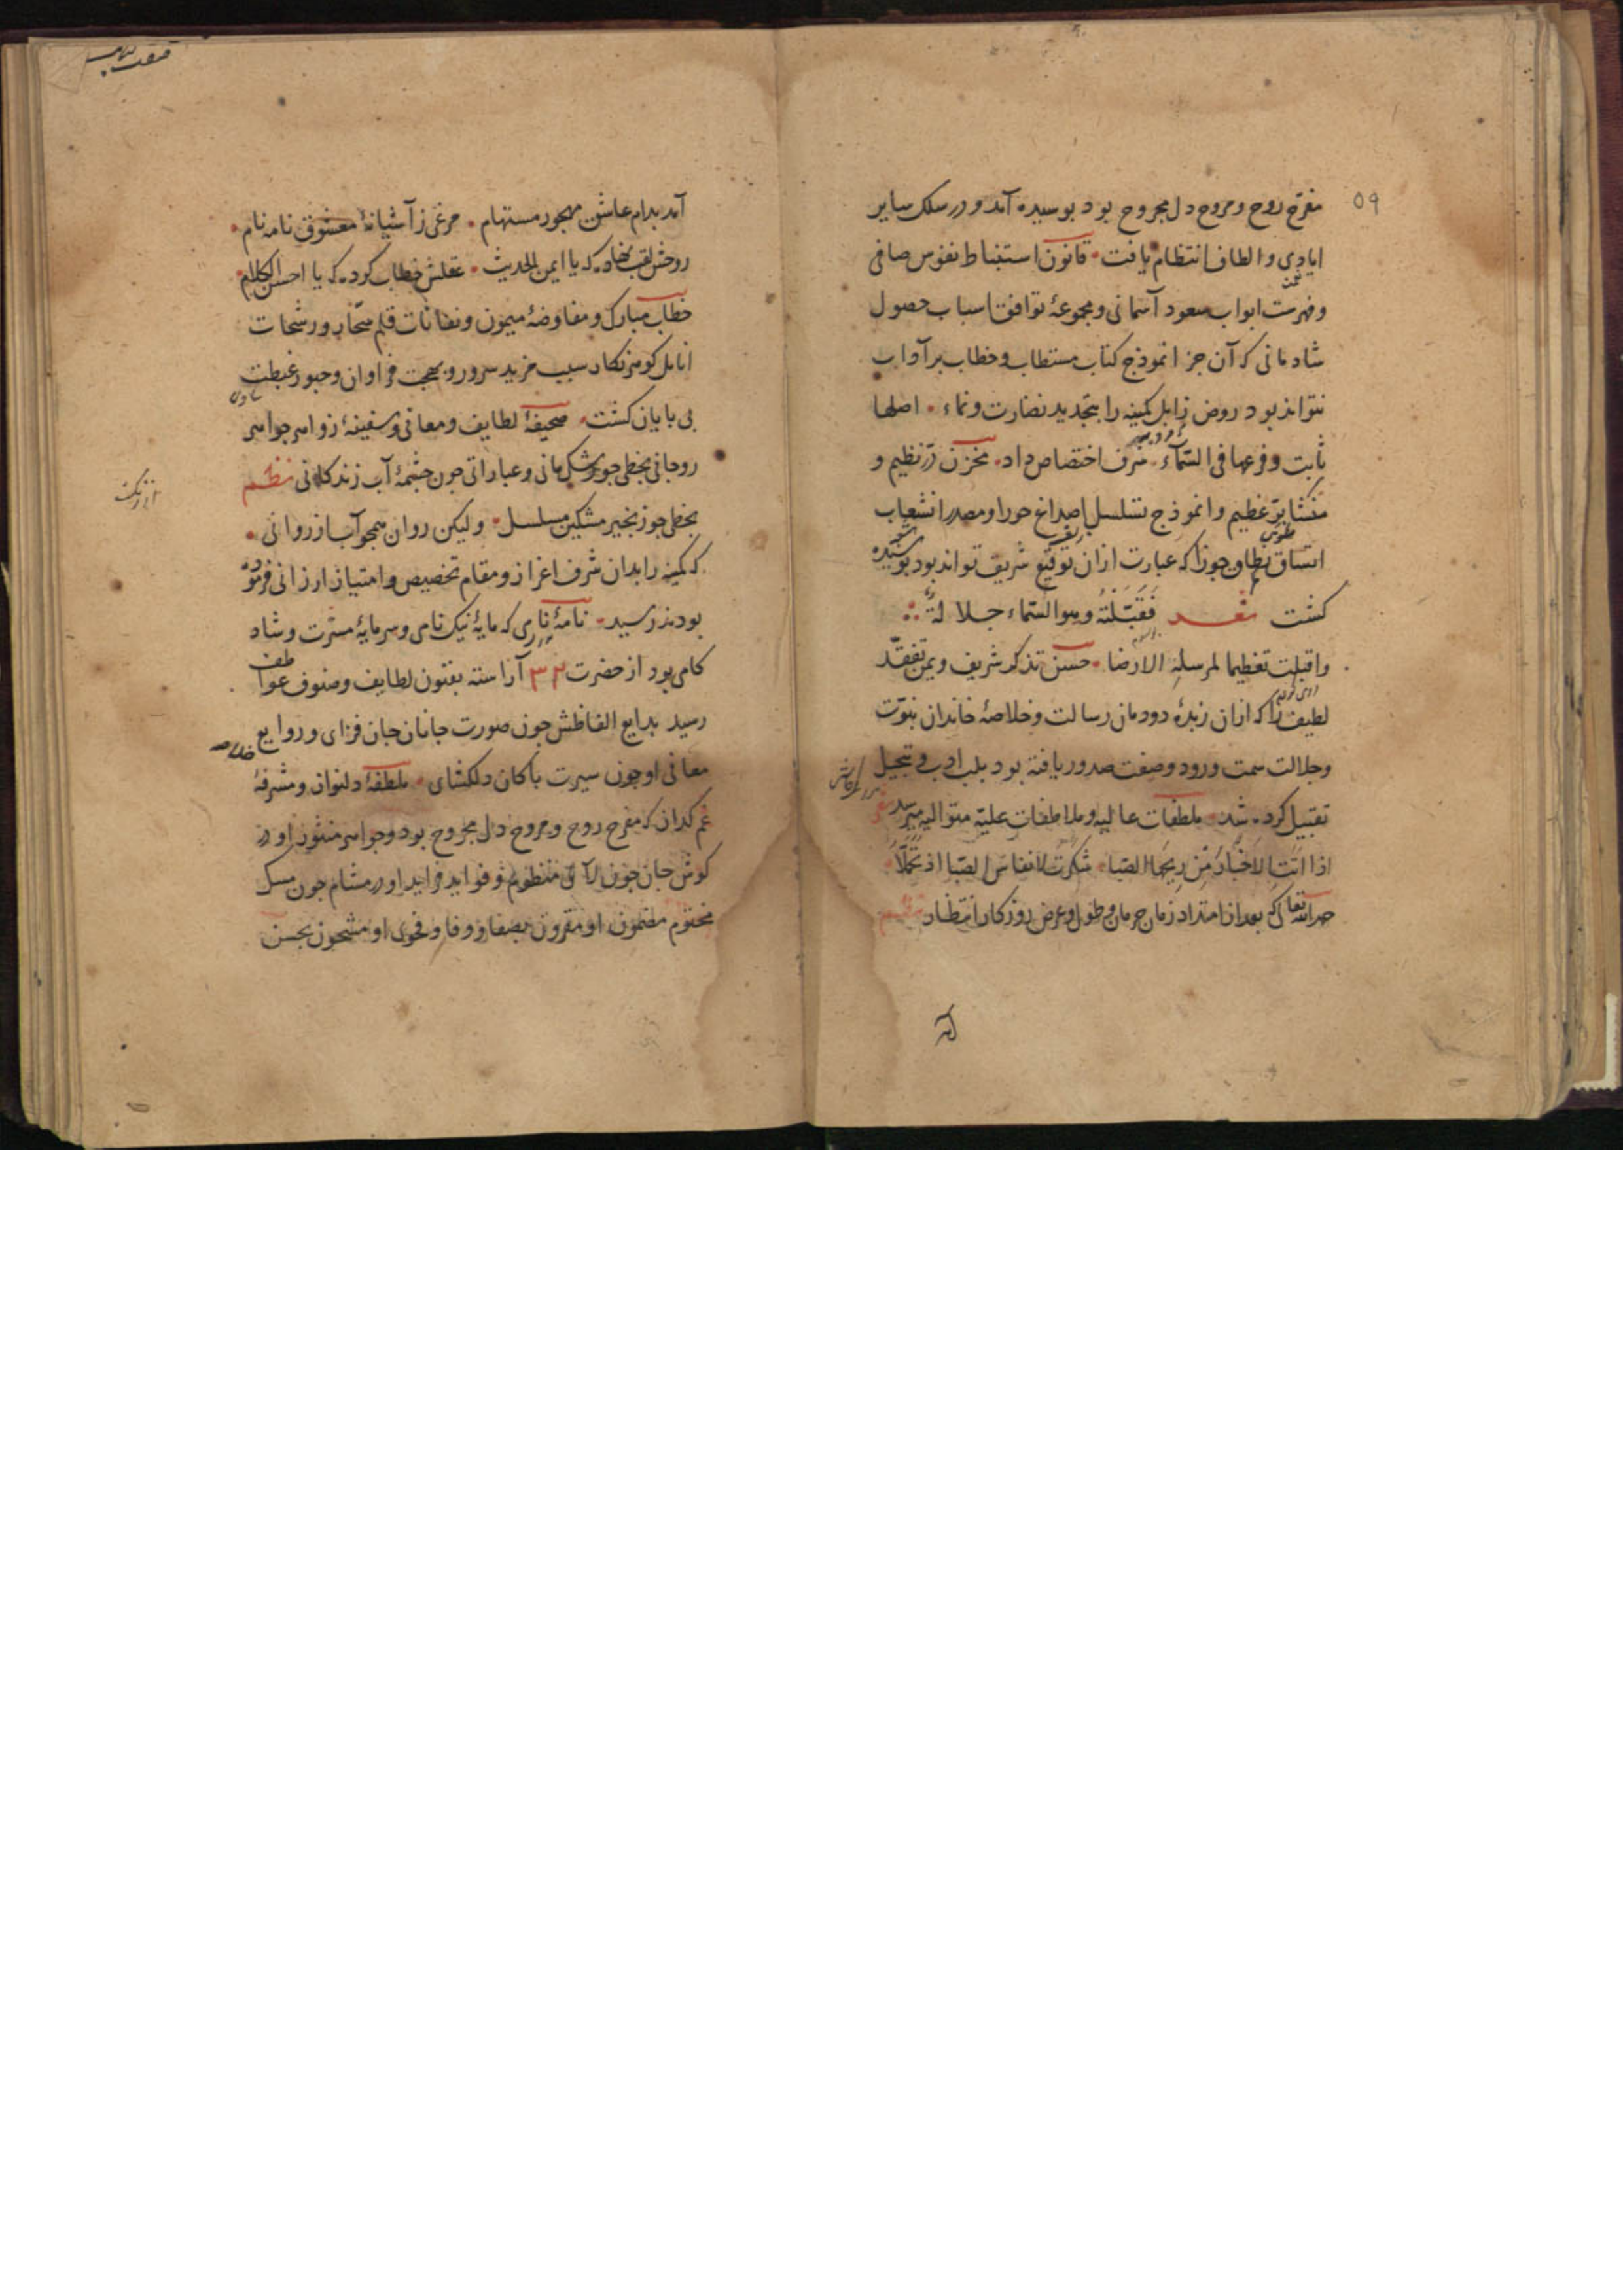 ۵۹
مفرّح روح و مروح دل مجروح بود بوسیده آمد و در سلک سایر
ایادی و الطاف انتظام یافت قانون استنباط نفوس صافی
و فهرست ابواب سعود آسمانی و مجموعهٔ توافق اسباب حصول
شادمانی که آن جز انموذج کتاب مستطاب و خطاب برآداب
نتواند بود روض ذابل کمینه را بتجدید نضارت و نماء اصلها
ثابت و فرعها فی السّماء شرف اختصاص داد مخزن درّ نظیم و
منشا برّ عظیم و انموذج تسلسل اصداغ حور او مصدر انشعاب
اتساق نطاق جوزا که عبارت ازان توقیع شریف تواند بود بوسیده
کشت شعر فَقَبَّلتُهُ وهو السّماء جلالةً
و اقبلت تعظیما لمرسله الارضا حسن تذکر شریف و یمن تفقّد
لطیف را که ازان زبدهٔ دودمان رسالت و خلاصهٔ خاندان نبوّت
و جلالت سمت ورود و صفت صدور یافته بود بلب ادب و تبجیل
تقبیل کرده شد ملطفات عالیه و ملاطفات علیّه متوالیه میرسد
اذا اتت الاخبار من ریحها الصّبا شکرت لانفاس الصّبا اذ تحملا
حمد الله تعالی که بعد از امتداد زمان حرمان و طول و عرض روزکار انتظار
آمد بدام عاشق مهجور مستهام مرغی ز آشیانهٔ معشوق نامه نام
روحش لقب نهاد که یا ایمن الحدیث عقلش خطاب کرد که یا احسن الکلام
خطاب مبارک و مفاوضهٔ میمون و نفاثات قلم سحّار و رشحات
انامل کوهرنکار سبب مزید سرور و بهجت فراوان و حبور غبطت
بی پایان کشت صحیفهٔ لطایف و معانی و سفینهٔ زواهر جواهر
روحانی بخطی چون شکل مانی و عباراتی چون چشمهٔ آب زندکانی نظم
بخطی چو زنجیر مشکین مسلسل ولیکن روان همچو آب از روانی
که کمینه را بدان شرف اعزاز و مقام تخصیص و امتیاز ارزانی فرموده
بودند رسید نامهٔ نامی که مایهٔ نیک نامی و سرمایهٔ مسرّت و شاد
کامی بود از حضرت ۳۲ آراسته بفنون لطایف و صنوف عواطف
رسید بدایع الفاظش چون صورت جانان جان فزای و روایع
معانی او چون سیرت پاکان دلکشای ملطفهٔ دلنواز و مشرفهٔ
غم کداز که مفرح روح و مروح دل مجروح بود و جواهر منثور او در
کوش جان چون لآلی منظوم و فواید فراید او در مشام چون مسک
مختوم مضمون او مقرون بصفا و وفا و فحوی او مشحون بحسن